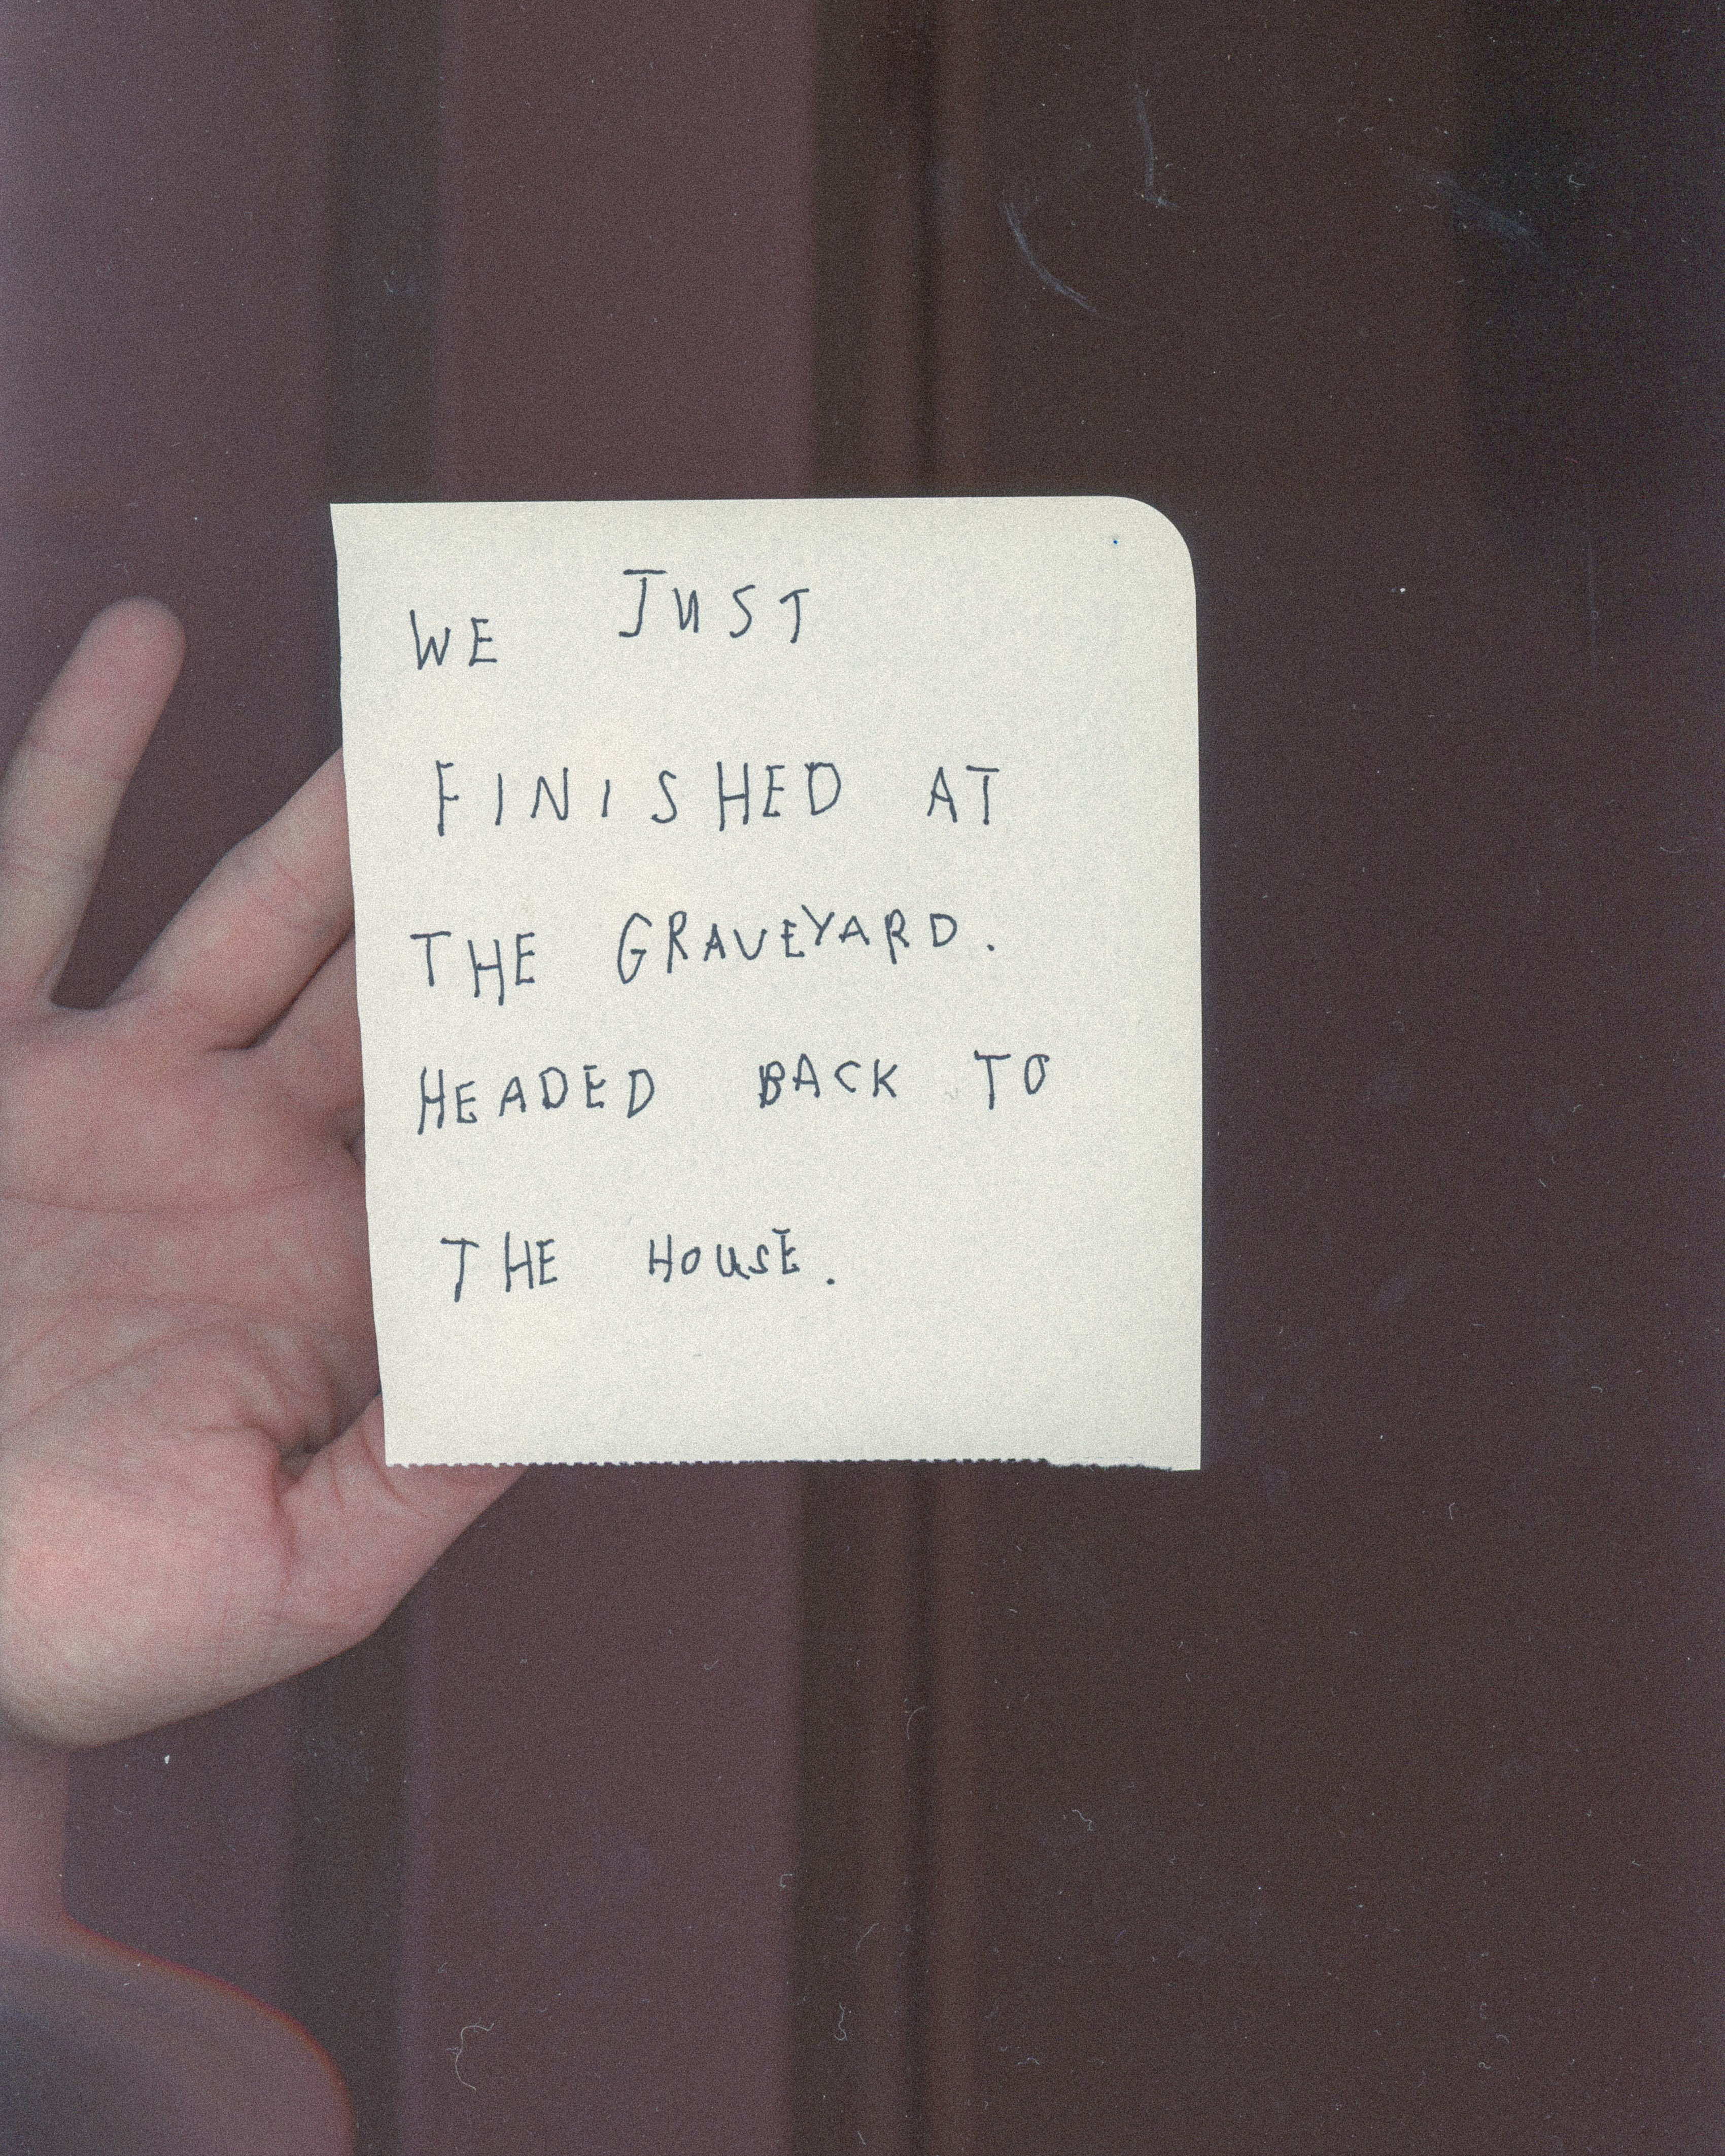 WE JUST
FINISHED AT
THE GRAVEYARD.
HEADED BACK TO
THE HOUSE.